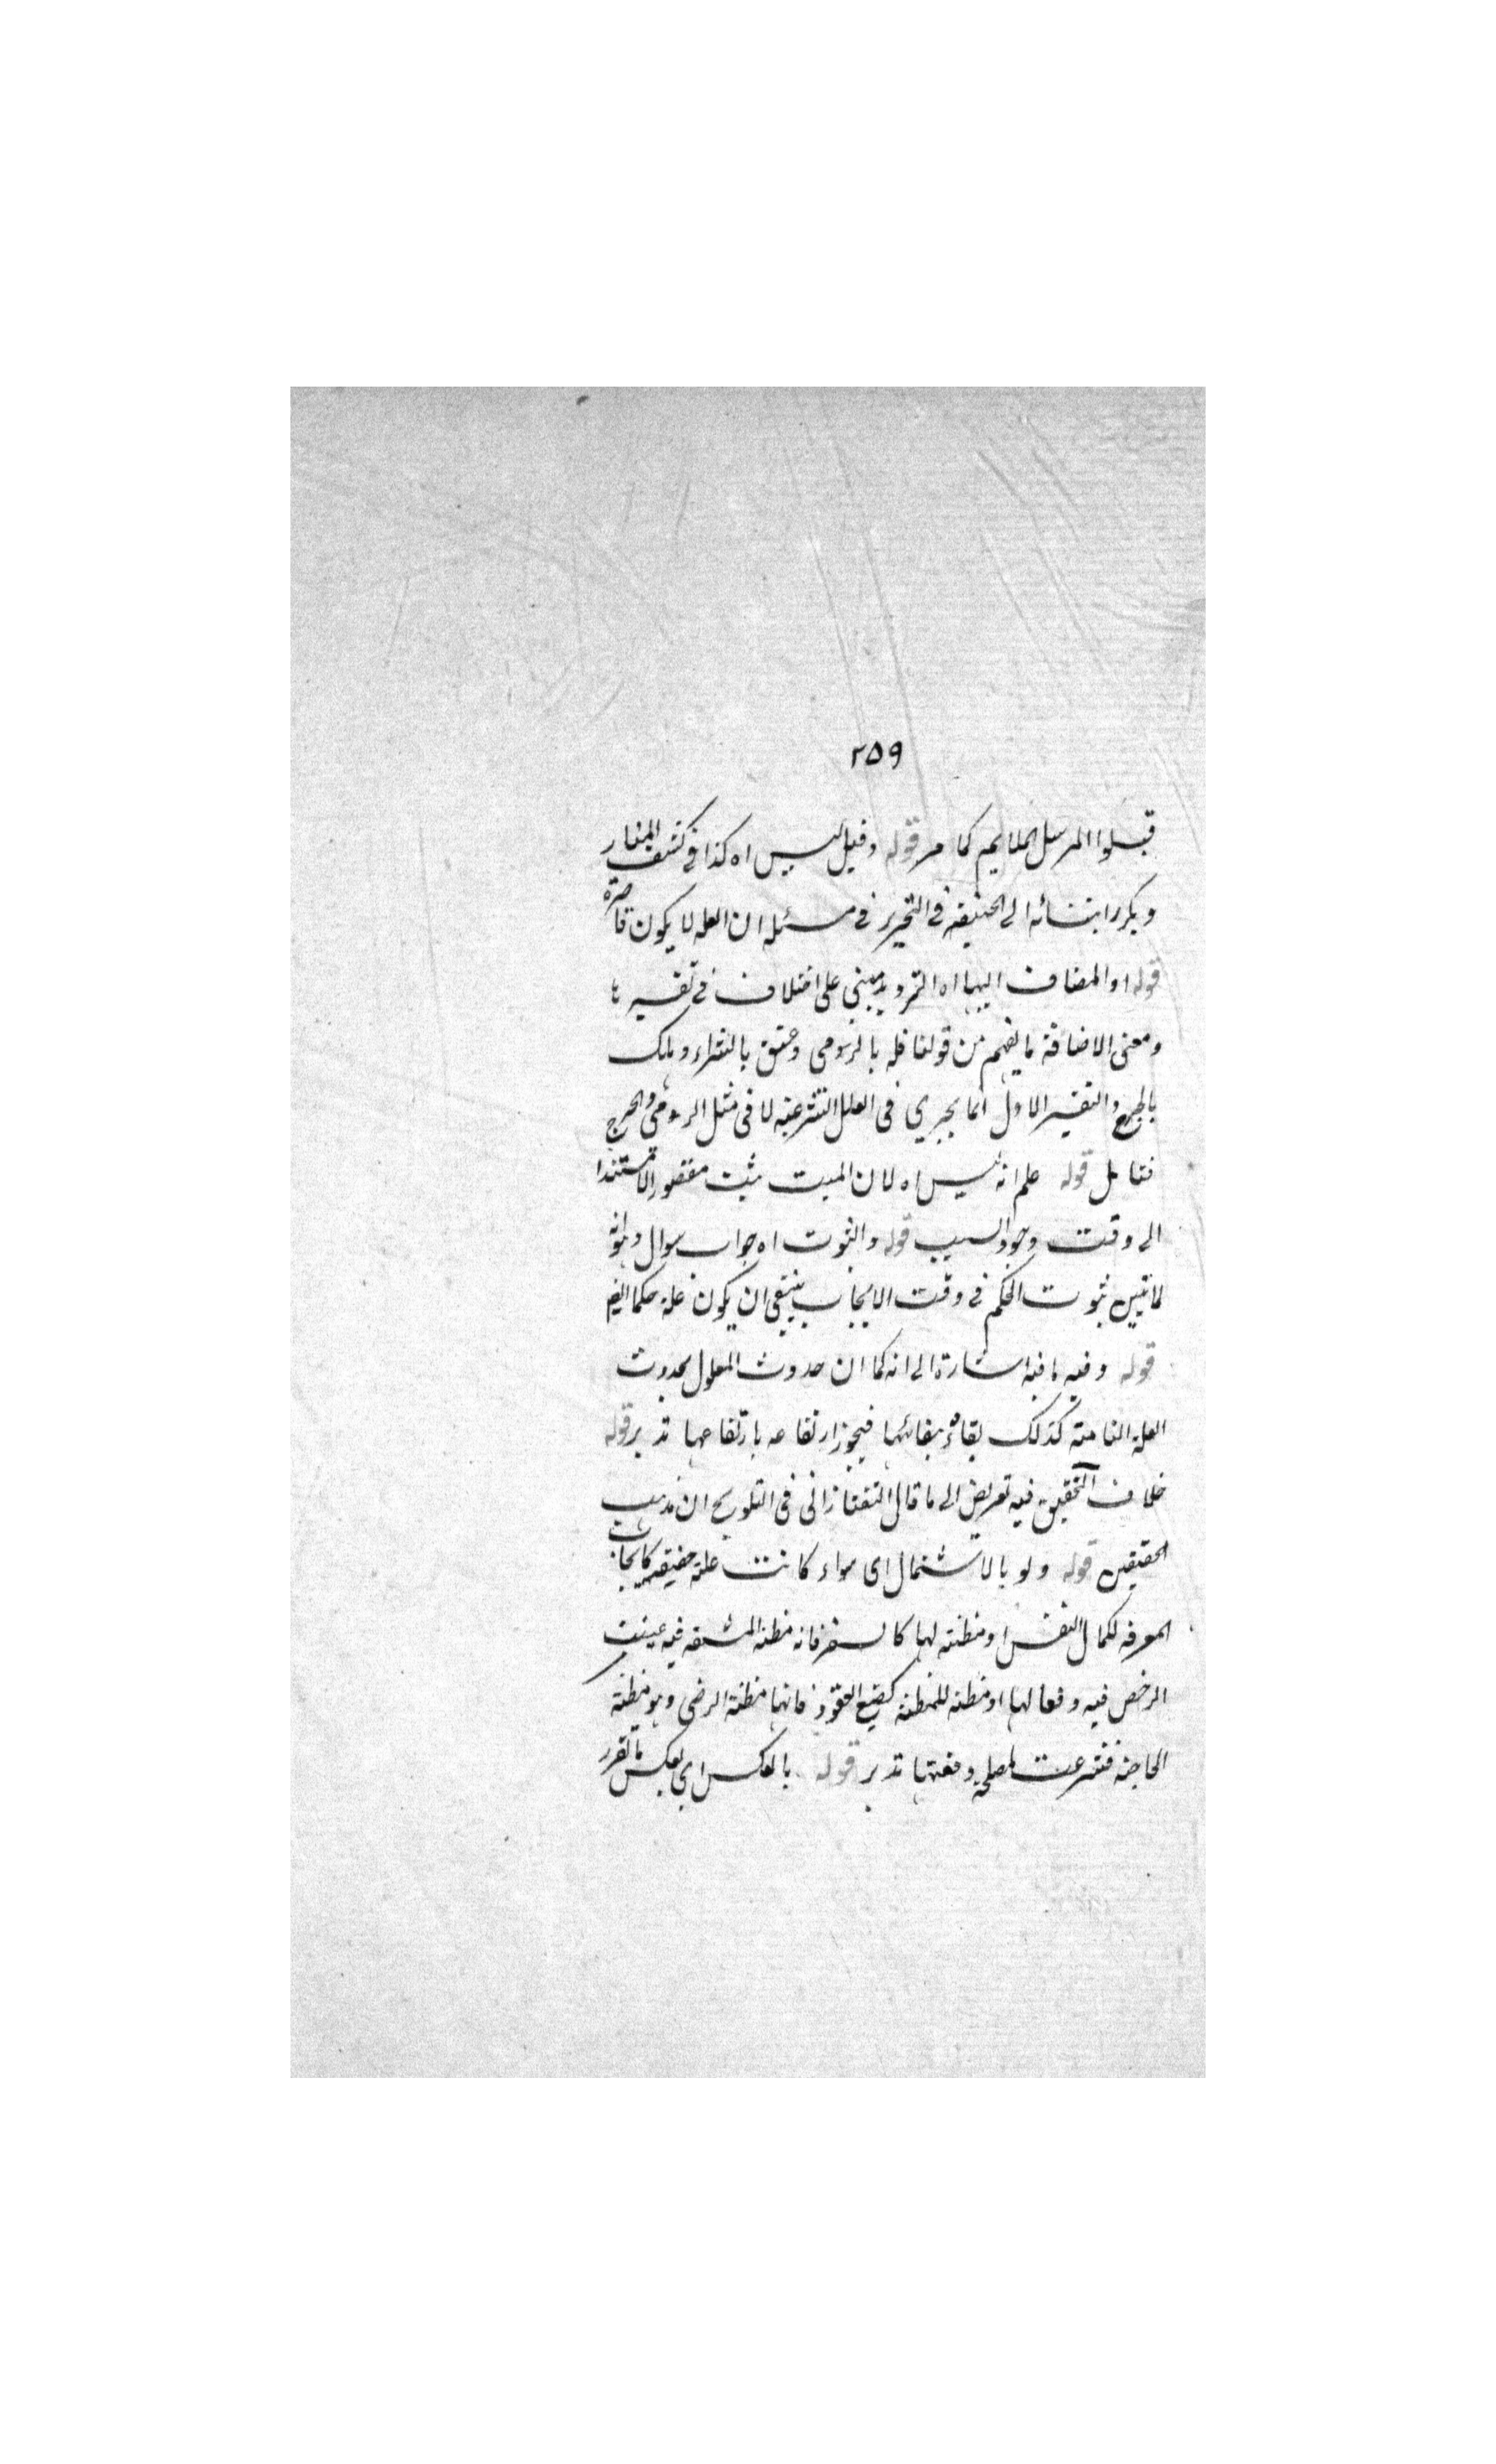 ٢٥٩
قبلوا المرسل الملايم كما مر قوله وقيل ليس اه كذا في كشف المنار
ويكرر ابتنائه الى الحنيفة في التحرير في مسئلة ان العلة لا يكون قاصرة
قوله او المضاف اليها اه الترديد مبني على اختلاف في تفسيرها
ومعنى الاضافة ما يفهم من قولنا قتله بالرمى وعتق بالشراء وهلك
بالجرح والتفسير الاول انما يجري في العلل الشرعية لا في مثل الرمى والجرح
فتامل قوله علم انه ليس اه لان المسبب يثبت مقصورا لا مستندا
الى وقت وجود السبب قوله والثبوت اه جواب سوال وهو انه
لما تبين ثبوت الحكم في وقت الايجاب ينبغي ان يكون علة حكما ايضا
قوله وفيه ما فيه اشارة الى انه كما ان حدوث المعلول بحدوث
العلة التامة كذلك بقاؤه ببقائها فيجوز ارتفاعه بارتفاعها تدبر قوله
خلاف التحقيق فيه تعريض الى ما قال التفتازاني في التلويح ان مذهب
المحققين قوله ولو بالاشتمال اى سواء كانت علة حقيقية كايجاب
المعرفة لكمال النفس او مظنته لها كالسفر فانه مظنة المشقة فيه عينت
الرخص فيه دفعا لها او مظنة للمظنة كصيغ العقود فانها مظنة الرضى وهو مظنة
الحاجة فشرعت لمصلحة دفعها تدبر قوله بالعكس اي بعكس ما تقرر